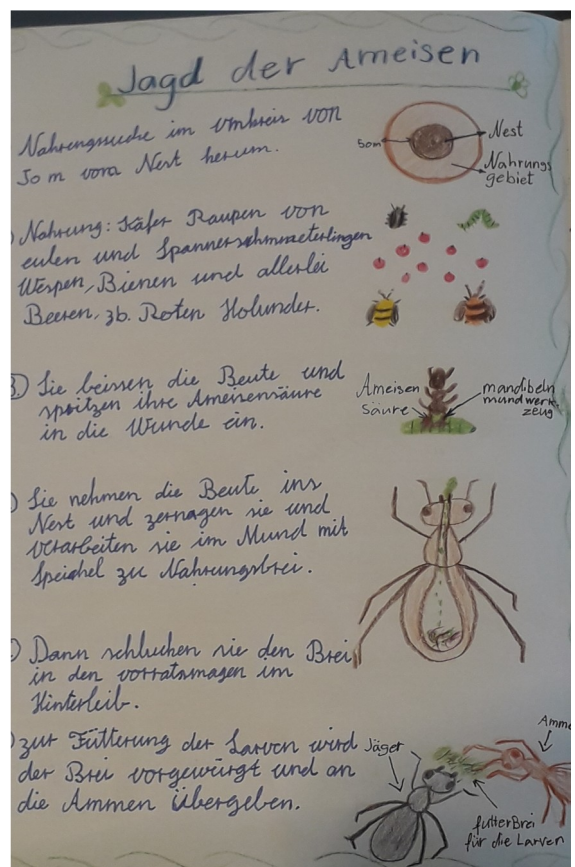 Jagd der Ameisen
Nahrungssuche im Umkreis von
50 m vom Nest herum.
50m
Nest
Nahrungs
gebiet
Nahrung: Käfer Raupen von
eulen und Spannerschmeterlingen
Wespen, Bienen und allerlei
Beeren, zb. Roten Holunder.
3.) Sie beissen die Beute und
spritzen ihre Ameisensäure
in die Wunde ein.
Ameisen
säure
mandibeln
mundwerk
zeug
Sie nehmen die Beute ins
Nest und zernagen sie und
verarbeiten sie im Mund mit
Speichel zu Nahrungsbrei.
Dann schlucken sie den Brei
in den vorratsmagen im
Hinterleib.
zur Fütterung der Larven wird
der Brei vorgewürgt und an
die Ammen übergeben.
Jäger
Amme
futterBrei
für die Larven